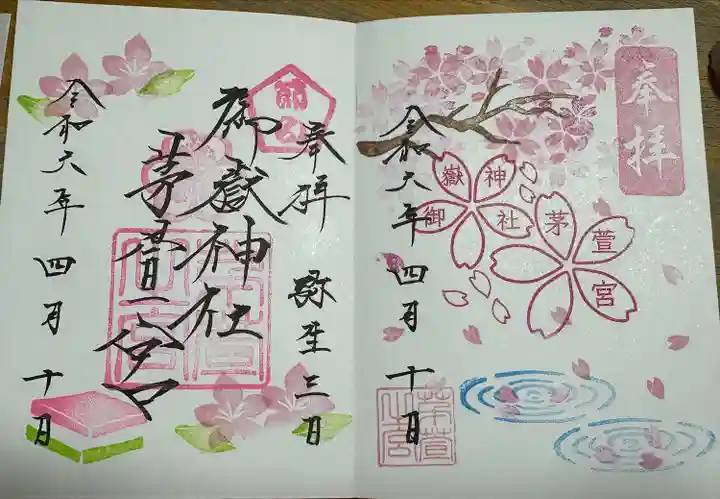 奉拝
御嶽神社
茅萱宮
令和六年四月十日
奉拝
弥生三日
御嶽神社
茅萱宮
令和六年四月十日